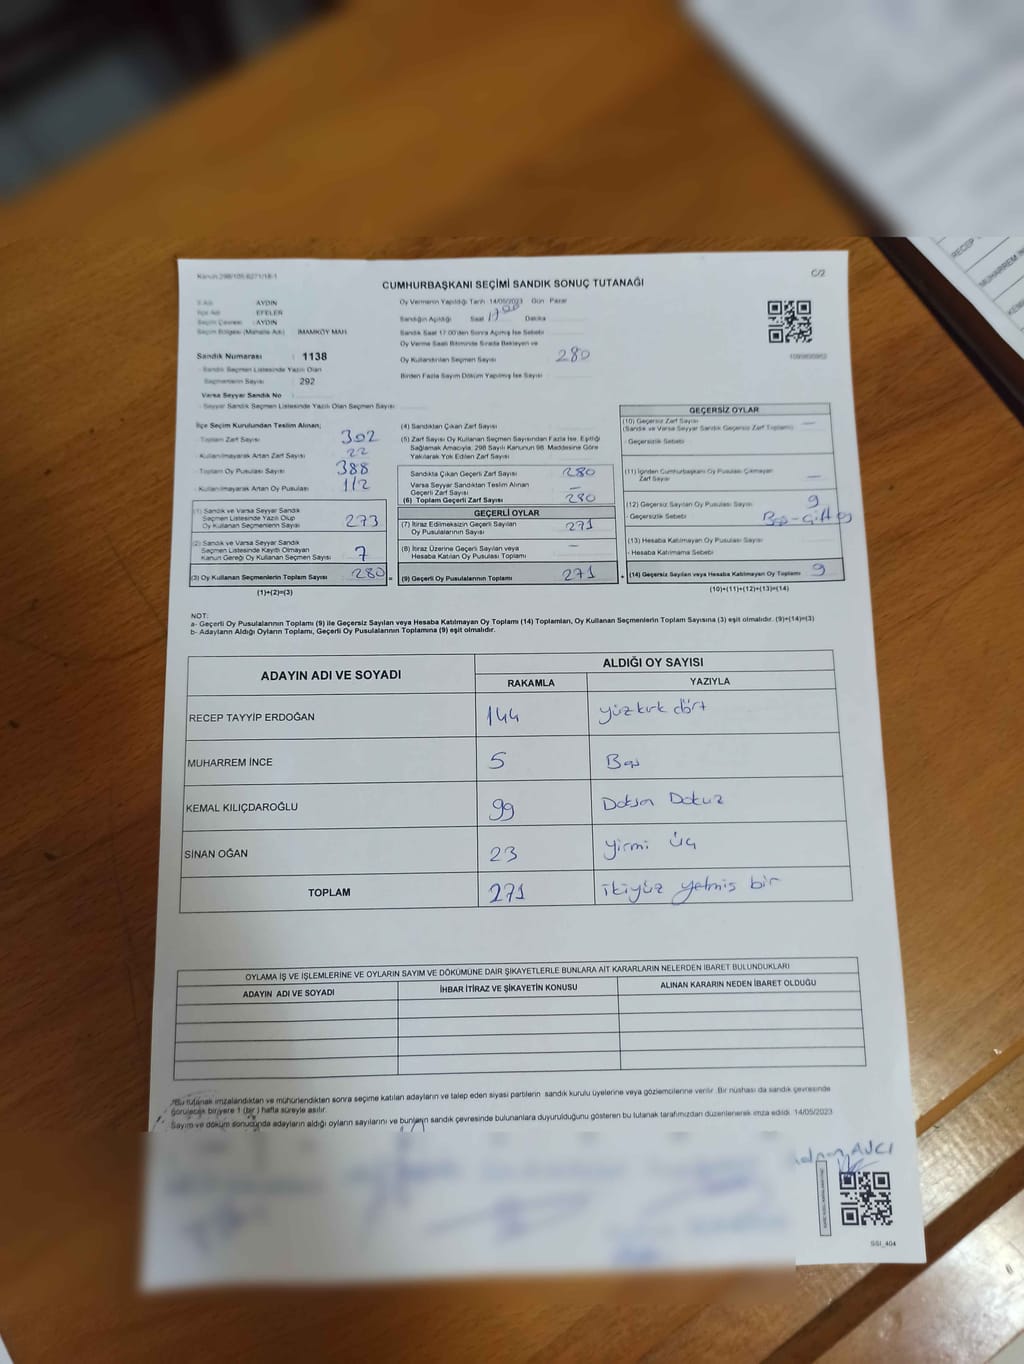 Kanun 298/105-6271/18-1
C/2
CUMHURBAŞKANI SEÇİMİ SANDIK SONUÇ TUTANAĞI
İl Adı : AYDIN
İlçe Adı : EFELER
Seçim Çevresi : AYDIN
Seçim Bölgesi (Mahalle Adı) : İMAMKÖY MAH.
Sandık Numarası : 1138
Sandık Seçmen Listesinde Yazılı Olan
Seçmenlerin Sayısı : 292
Varsa Seyyar Sandık No
Seyyar Sandık Seçmen Listesinde Yazılı Olan Seçmen Sayısı
Oy Vermenin Yapıldığı Tarih : 14/05/2023 Gün : Pazar
Sandığın Açıldığı Saat 17:00 Dakika
Sandık Saat 17:00'den Sonra Açılmış İse Sebebi
Oy Verme Saati Bitiminde Sırada Bekleyen ve
Oy Kullandırılan Seçmen Sayısı 280
Birden Fazla Sayım Döküm Yapılmış İse Sayısı
İlçe Seçim Kurulundan Teslim Alınan;
- Toplam Zarf Sayısı 302
- Kullanılmayarak Artan Zarf Sayısı 22
- Toplam Oy Pusulası Sayısı 388
- Kullanılmayarak Artan Oy Pusulası 112
(1) Sandık ve Varsa Seyyar Sandık
Seçmen Listesinde Yazılı Olup
Oy Kullanan Seçmenlerin Sayısı 273
(2) Sandık ve Varsa Seyyar Sandık
Seçmen Listesinde Kayıtlı Olmayan
Kanun Gereği Oy Kullanan Seçmen Sayısı 7
(3) Oy Kullanan Seçmenlerin Toplam Sayısı 280 =
(1)+(2)=(3)
(4) Sandıktan Çıkan Zarf Sayısı
(5) Zarf Sayısı Oy Kullanan Seçmen Sayısından Fazla İse, Eşitliği
Sağlamak Amacıyla, 298 Sayılı Kanunun 98. Maddesine Göre
Yakılarak Yok Edilen Zarf Sayısı
Sandıkta Çıkan Geçerli Zarf Sayısı 280
Varsa Seyyar Sandıktan Teslim Alınan
Geçerli Zarf Sayısı —
(6) Toplam Geçerli Zarf Sayısı 280
GEÇERLİ OYLAR
(7) İtiraz Edilmeksizin Geçerli Sayılan
Oy Pusulalarının Sayısı 271
(8) İtiraz Üzerine Geçerli Sayılan veya
Hesaba Katılan Oy Pusulası Toplamı —
(9) Geçerli Oy Pusulalarının Toplamı 271 +
GEÇERSİZ OYLAR
(10) Geçersiz Zarf Sayısı —
(Sandık ve Varsa Seyyar Sandık Geçersiz Zarf Toplamı)
- Geçersizlik Sebebi
(11) İçinden Cumhurbaşkanı Oy Pusulası Çıkmayan
Zarf Sayısı —
(12) Geçersiz Sayılan Oy Pusulası Sayısı 9
- Geçersizlik Sebebi
(13) Hesaba Katılmayan Oy Pusulası Sayısı
- Hesaba Katılmama Sebebi
(14) Geçersiz Sayılan veya Hesaba Katılmayan Oy Toplamı 9
(10)+(11)+(12)+(13)=(14)
NOT:
a- Geçerli Oy Pusulalarının Toplamı (9) ile Geçersiz Sayılan veya Hesaba Katılmayan Oy Toplamı (14) Toplamları, Oy Kullanan Seçmenlerin Toplam Sayısına (3) eşit olmalıdır. (9)+(14)=(3)
b- Adayların Aldığı Oyların Toplamı, Geçerli Oy Pusulalarının Toplamına (9) eşit olmalıdır.
ADAYIN ADI VE SOYADI ALDIĞI OY SAYISI
RAKAMLA YAZIYLA
RECEP TAYYİP ERDOĞAN 144 yüzkırk dört
MUHARREM İNCE 5 Beş
KEMAL KILIÇDAROĞLU 99 Doksan Dokuz
SİNAN OĞAN 23 yirmi üç
TOPLAM 271 ikiyüz yetmiş bir
OYLAMA İŞ VE İŞLEMLERİNE VE OYLARIN SAYIM VE DÖKÜMÜNE DAİR ŞİKAYETLERLE BUNLARA AİT KARARLARIN NELERDEN İBARET BULUNDUKLARI
ADAYIN ADI VE SOYADI İHBAR İTİRAZ VE ŞİKAYETİN KONUSU ALINAN KARARIN NEDEN İBARET OLDUĞU
*Bu tutanak imzalandıktan ve mühürlendikten sonra seçime katılan adayların ve talep eden siyasi partilerin sandık kurulu üyelerine veya gözlemcilerine verilir. Bir nüshası da sandık çevresinde
görülecek bir yere 1 (bir) hafta süreyle asılır.
Sayım ve döküm sonucunda adayların aldığı oyların sayılarını ve bunların sandık çevresinde bulunanlara duyurulduğunu gösteren bu tutanak tarafımızdan düzenlenerek imza edildi. 14/05/2023
AVCI
SSI_404
RECEP
MUHARREM İN